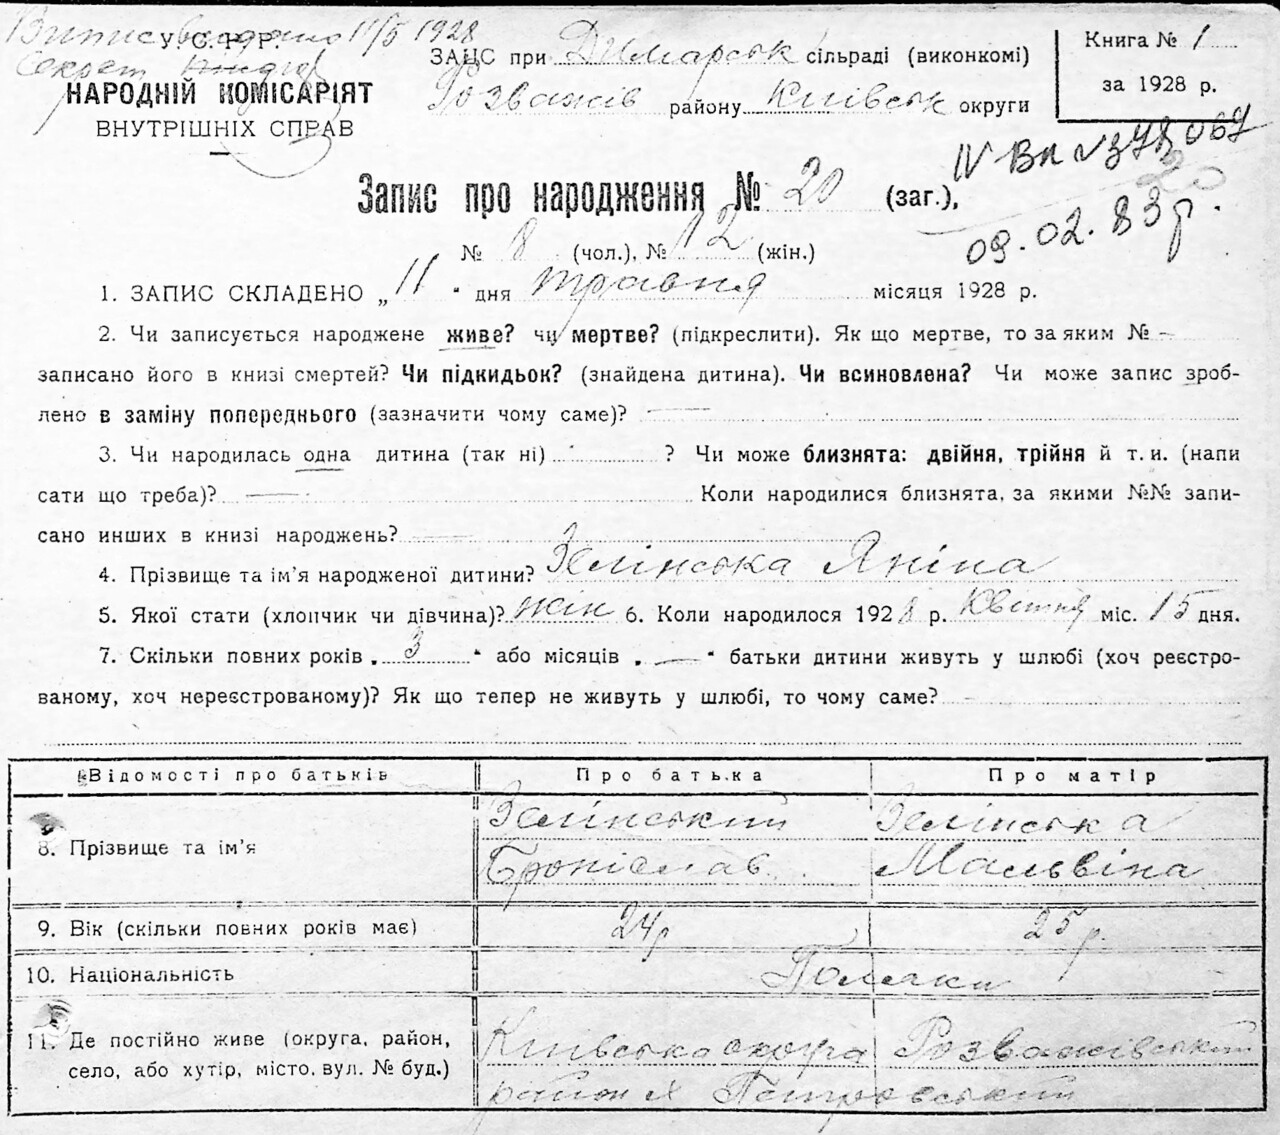 Випис видано 11/5 1928
У.С.Р.Р.
Секрет
НАРОДНІЙ КОМІСАРІЯТ
ВНУТРІШНІХ СПРАВ
ЗАЦС при Димарськ сільраді (виконкомі)
Розважів району Київськ округи
Книга № 1
за 1928 р.
IV ВЛ №378067
20
09.02.83р.
Запис про народження № 20 (заг.),
№ 8 (чол.), № 12 (жін.)
1. ЗАПИС СКЛАДЕНО „ 11 " дня травня місяця 1928 р.
2. Чи записується народжене живе? чи мертве? (підкреслити). Як що мертве, то за яким № —
записано його в книзі смертей? Чи підкидьок? (знайдена дитина). Чи всиновлена? Чи може запис зроб-
лено в заміну попереднього (зазначити чому саме)? —
3. Чи народилась одна дитина (так ні) ? Чи може близнята: двійня, трійня й т. и. (напи
сати що треба)? — Коли народилися близнята, за якими №№ запи-
сано инших в книзі народжень? —
4. Прізвище та ім'я народженої дитини? Зелінська Яніна
5. Якої стати (хлопчик чи дівчина)? жін 6. Коли народилося 1928 р. Квітня міс. 15 дня.
7. Скільки повних років „ 3 " або місяців „ — " батьки дитини живуть у шлюбі (хоч реєстро-
ваному, хоч нереєстрованому)? Як що тепер не живуть у шлюбі, то чому саме?
Відомості про батьків Про батька Про матір
8. Прізвище та ім'я Зелінський Броніслав Зелінська Мальвіна
9. Вік (скільки повних років має) 24р 25р.
10. Національність Поляки
11. Де постійно живе (округа, район, Київська округа Розважівський
село, або хутір, місто, вул. № буд.) район х Петровський